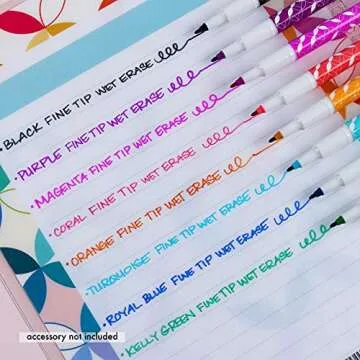 •BLACK FINE TIP WET ERASE
•PURPLE FINE TIP WET ERASE
•MAGENTA FINE TIP WET ERASE
•CORAL FINE TIP WET ERASE
•ORANGE FINE TIP WET ERASE
•TURQUOISE FINE TIP WET ERASE
•ROYAL BLUE FINE TIP WET ERASE
•KELLY GREEN FINE TIP WET ERASE
accessory not included